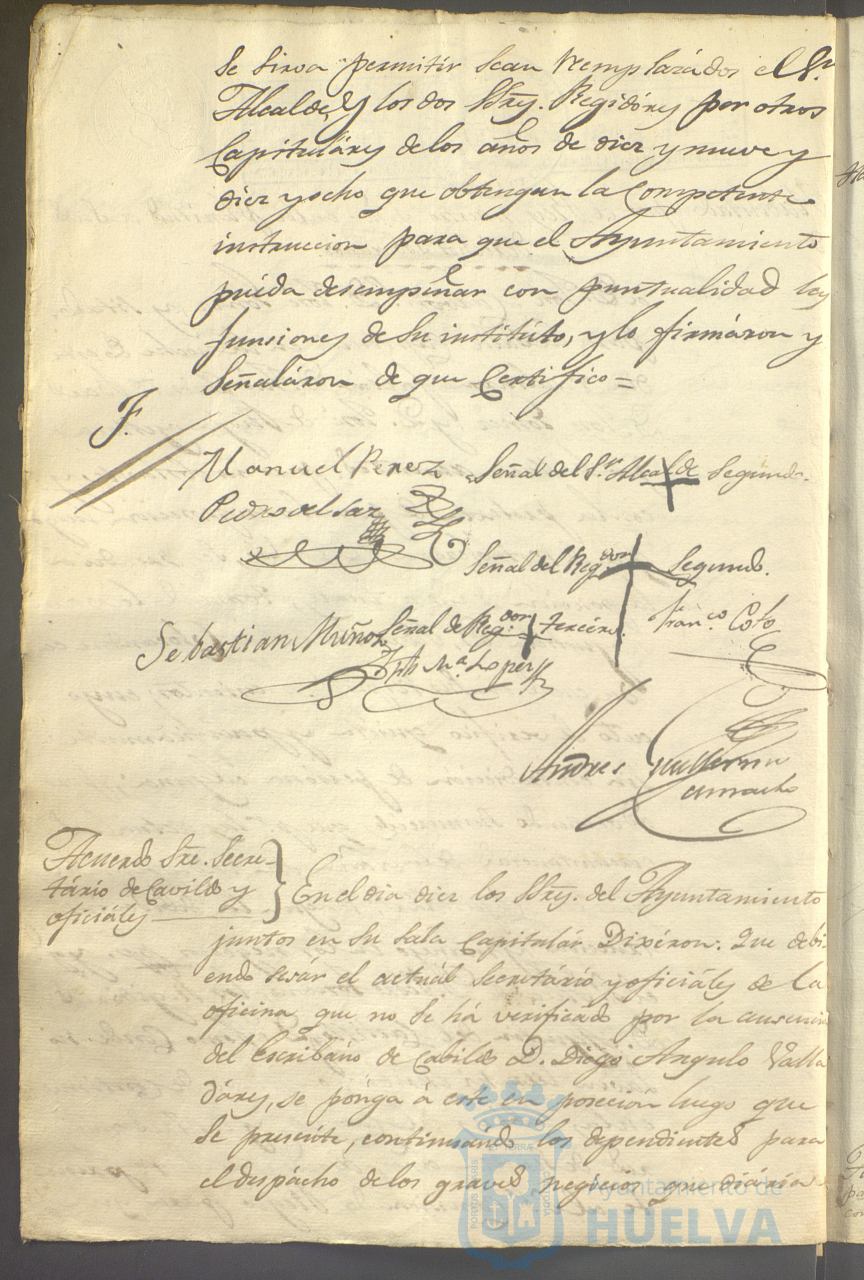 se sirva permitir sean remplazádos el Sr.
Alcalde, y los dos Sres. Regidóres por otros
Capituláres de los años de diez y nueve y
diez y ocho que obtengan la Competente
instruccion para que el Ayuntamiento
puéda desempeñar con puntualidad las
funsiones de su institúto, y lo firmáron y
señaláron de que Certifico =
F.
Manuel Perez Señal del Sr. Alcalde Segundo.
Pedro del Saz
Señal del Regidor Segundo.
Sebastian Muñoz Señal de Regdor. tercéro. Franco. Coto
Jph Ma. Lopez
Andres Guillermo
Camacho
Acuerdo Sre. Secre-
tário de Cavildo y
oficiáles
En el dia diez los Sres. del Ayuntamiento
juntos en su sala Capitulár Dixéron: Que debi
endo sesár el actuál Secretário y oficiáles de la
oficina, que no se há verificado por la ausencia
del Escribáno de Cabildo D. Diégo Angulo Valla
dáres, se pónga á este en posecion luego que
se presénte, continuándo los dependientes para
el despácho de los graves negócios que diária
Ayuntamiento de
HUELVA